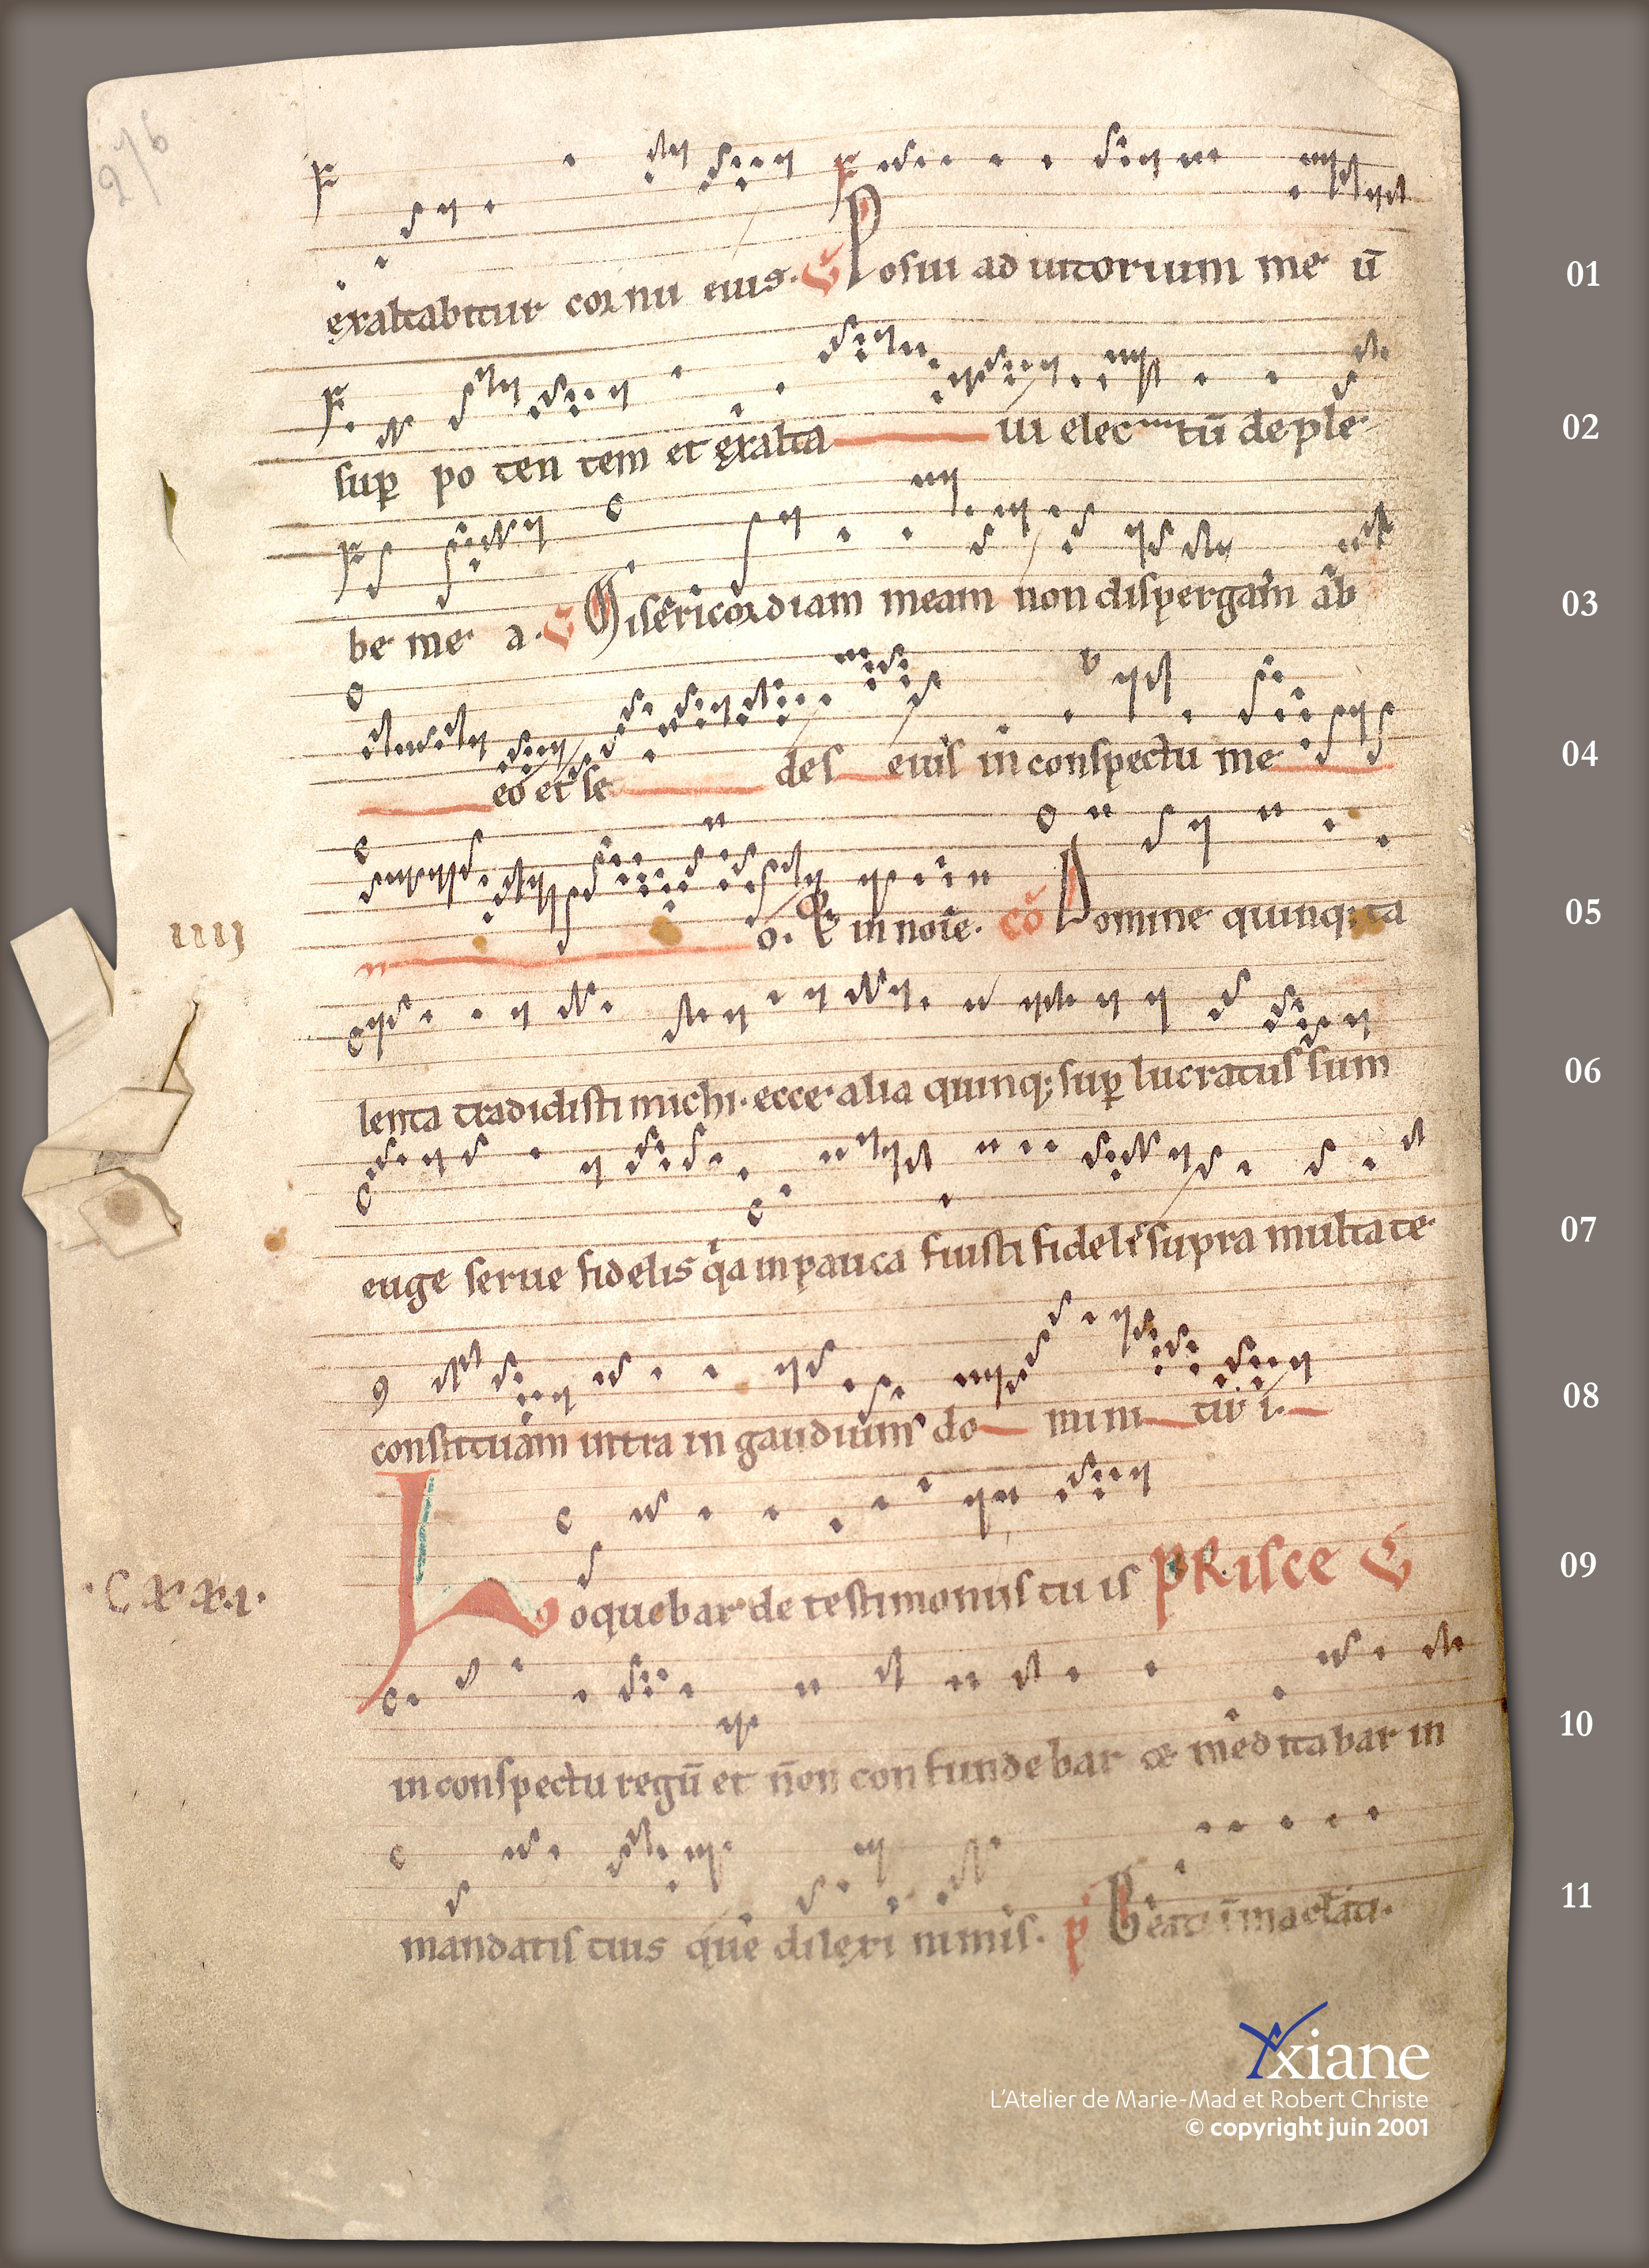 276
exaltabitur cornu eius. V Posui adiutorium me ū 01
sup po ten tem et exalta ui elec tū de ple 02
be me a. V Misericordiam meam non dispergam ab 03
eo et se des eius in conspectu me 04
o. in noie. Cō Domine quinq; ta 05
IIIJ
lenta tradidisti michi. ecce alia quinq; sup lucratus sum 06
euge serue fidelis qa in pauca fuisti fidelis supra multa te 07
constituam intra in gaudium do mini tui. 08
Loquebar de testimoniis tu is PRISCE 09
.C.X.X.I.
in conspectu regū et non confundebar & meditabar in 10
mandatis tuis que dilexi nimis. p Beati imaclati. 11
Yxiane
L'Atelier de Marie-Mad et Robert Christe
© copyright juin 2001